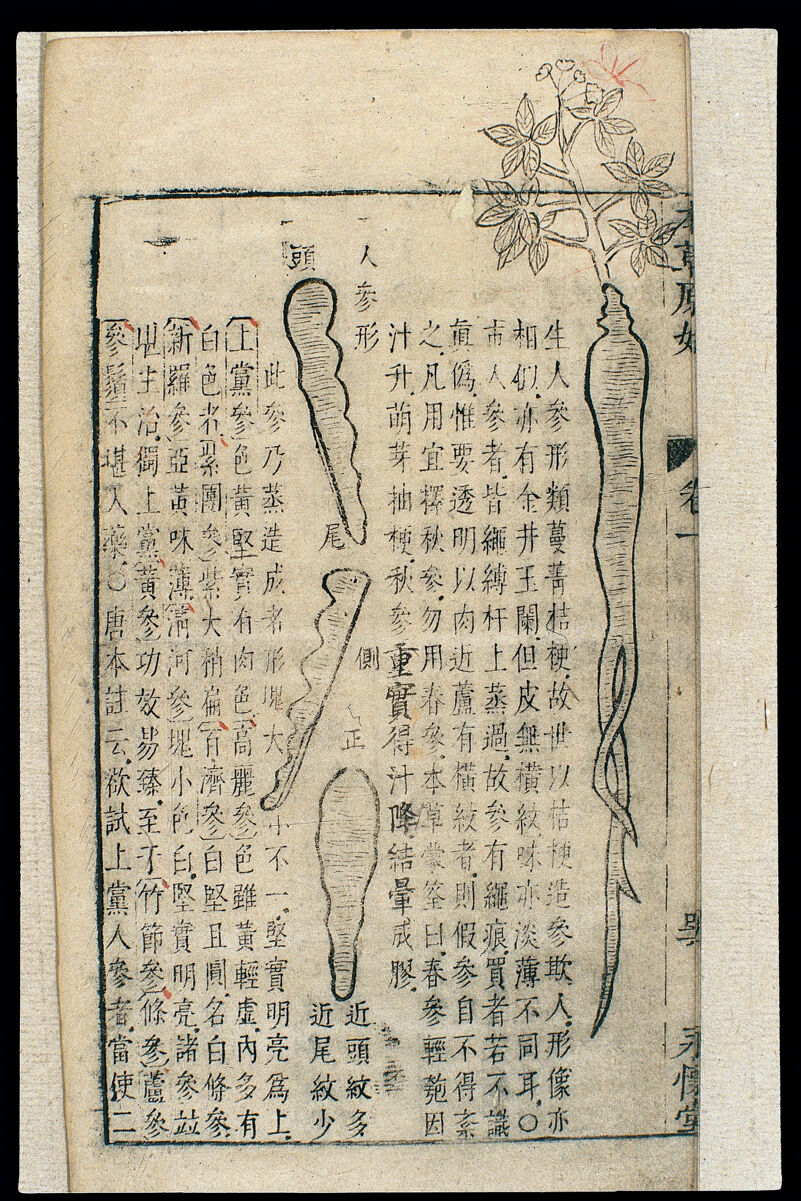 本草原始 卷一 永懷堂
生人參形類蔓菁桔梗故世以桔梗造參欺人形像亦
相似亦有金井玉闌但皮無橫紋味亦淡薄不同耳〇
市人參者皆繩縛杆上蒸過故參有繩痕買者若不識
真僞惟要透明以肉近蘆有橫紋者則假參自不得紊
之凡用宜擇秋參勿用春參本草蒙筌曰春參輕匏因
汁升萌芽抽梗秋參重實得汁降結暈成膠
人參形
側
正
近頭紋多
頭
尾
近尾紋少
此參乃蒸造成者形塊大小不一堅實明亮爲上
上黨參色黃堅實有肉色高麗參色雖黃輕虛內多有
白色者紫團參紫大稍扁百濟參白堅且圓名白條參
新羅參亞黃味薄淸河參塊小色白堅實明亮諸參竝
堪主治獨上黨黃參功效易臻至于竹節參條參蘆參
參鬚不堪入藥〇唐本註云欲試上黨人參者當使二